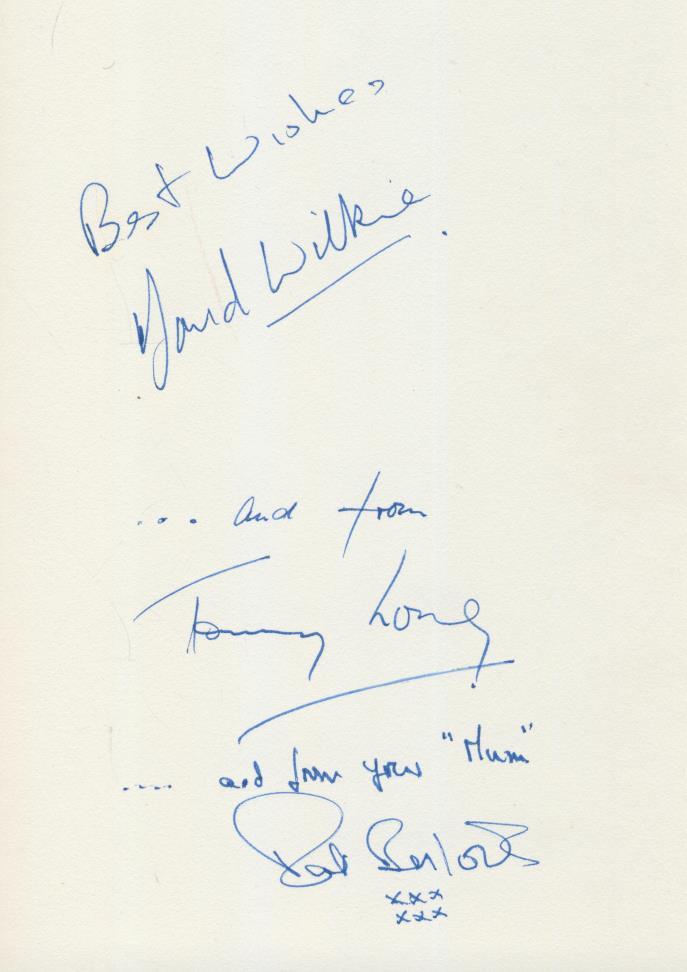 Best Wishes
David Wilkie.
... and from
Tommy Long
.... and from your "Mum"
Pat
xxx
xxx